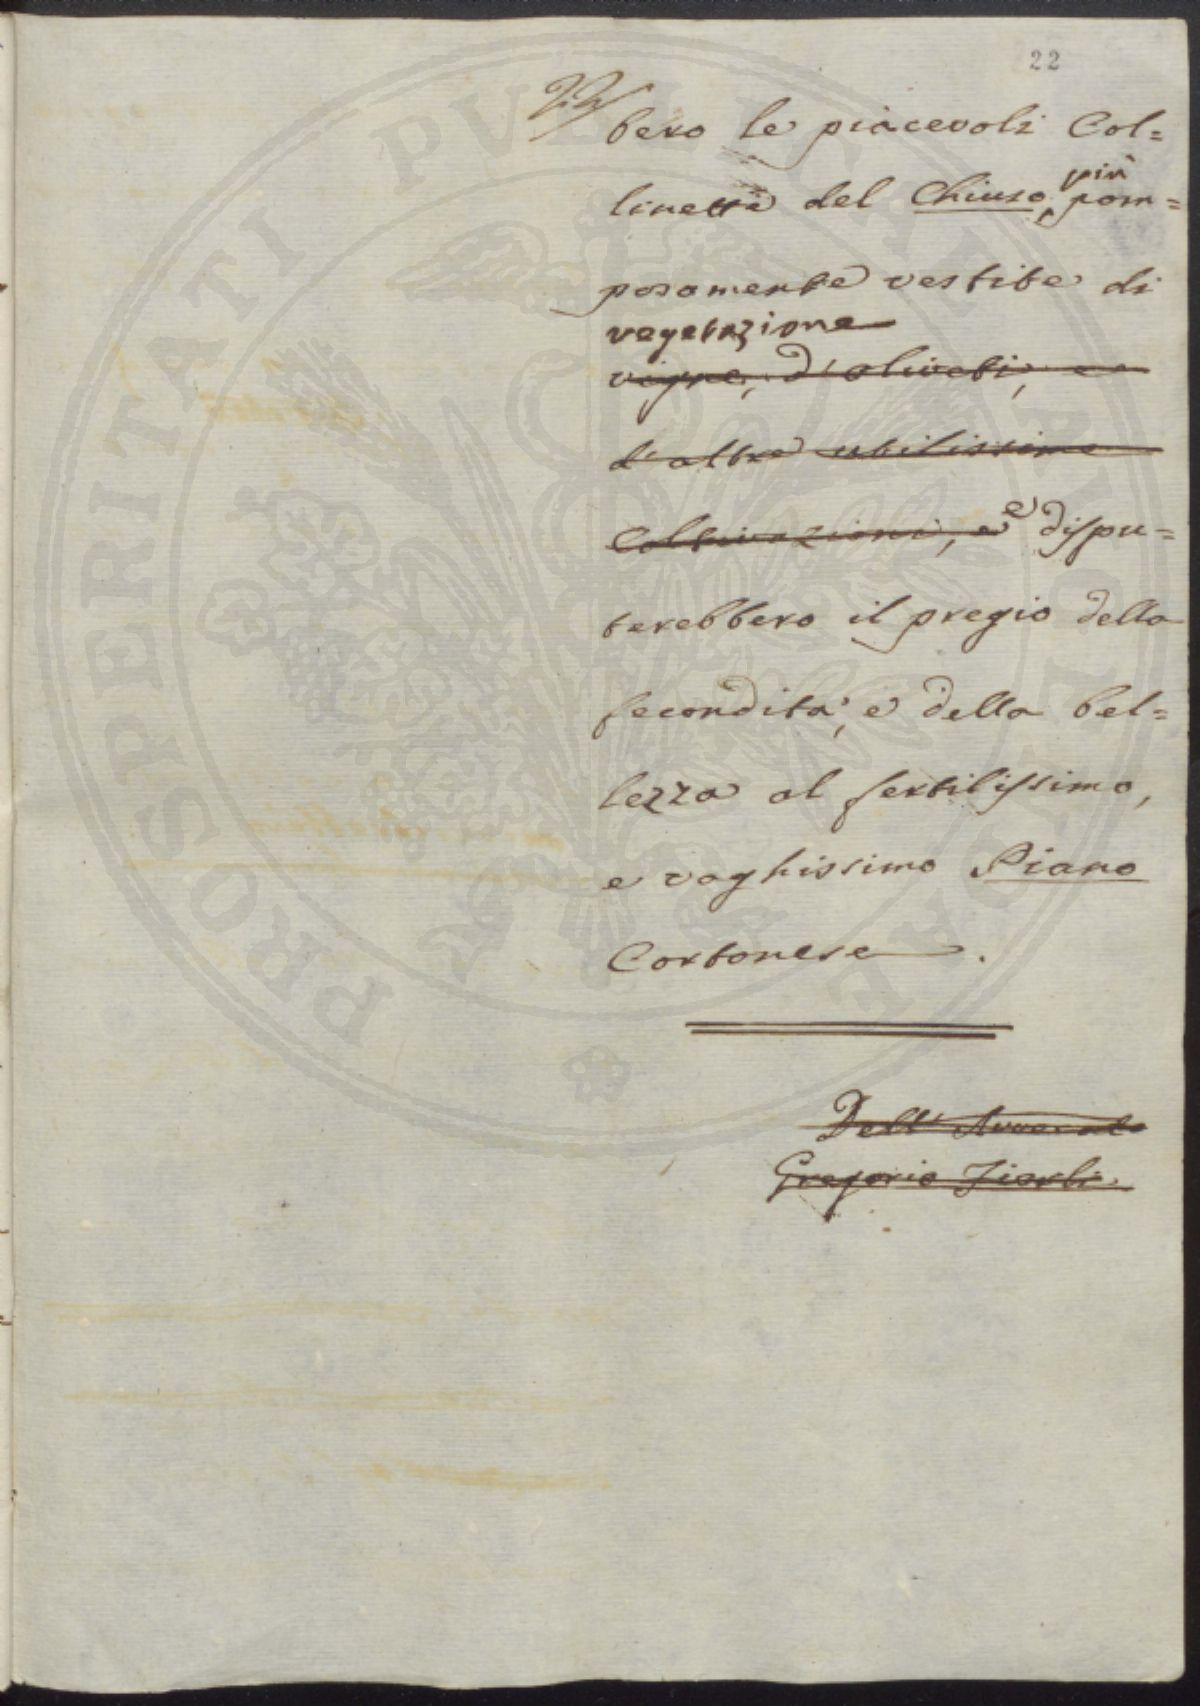 22
bero le piacevoli Col=
linette del Chiuso, più pom=
posamente vestite di
vegetazione
vigne, d'oliveti, e
d'altre utilissime
Coltivazioni, e e dispu=
terebbero il pregio della
fecondità, e della bel=
lezza al fertilissimo,
e vaghissimo Piano
Cortonese.
Dell' Avvocato
Gregorio Fierli.
PROSPERITATI PVBLICAE AVGENDAE